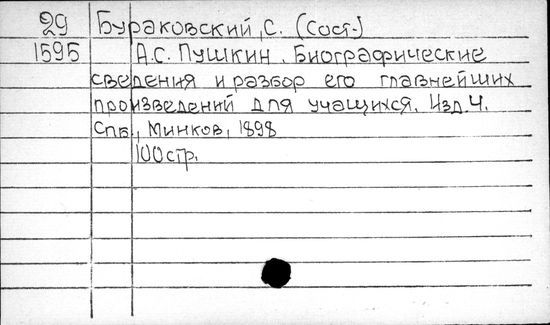 29 Бураковский, С. (Сост.)
1595 А.С. Пушкин. Биографические
сведения и разбор его главнейших
произведений для учащихся. Изд. 4.
Спб., Минков, 1898
100 стр.